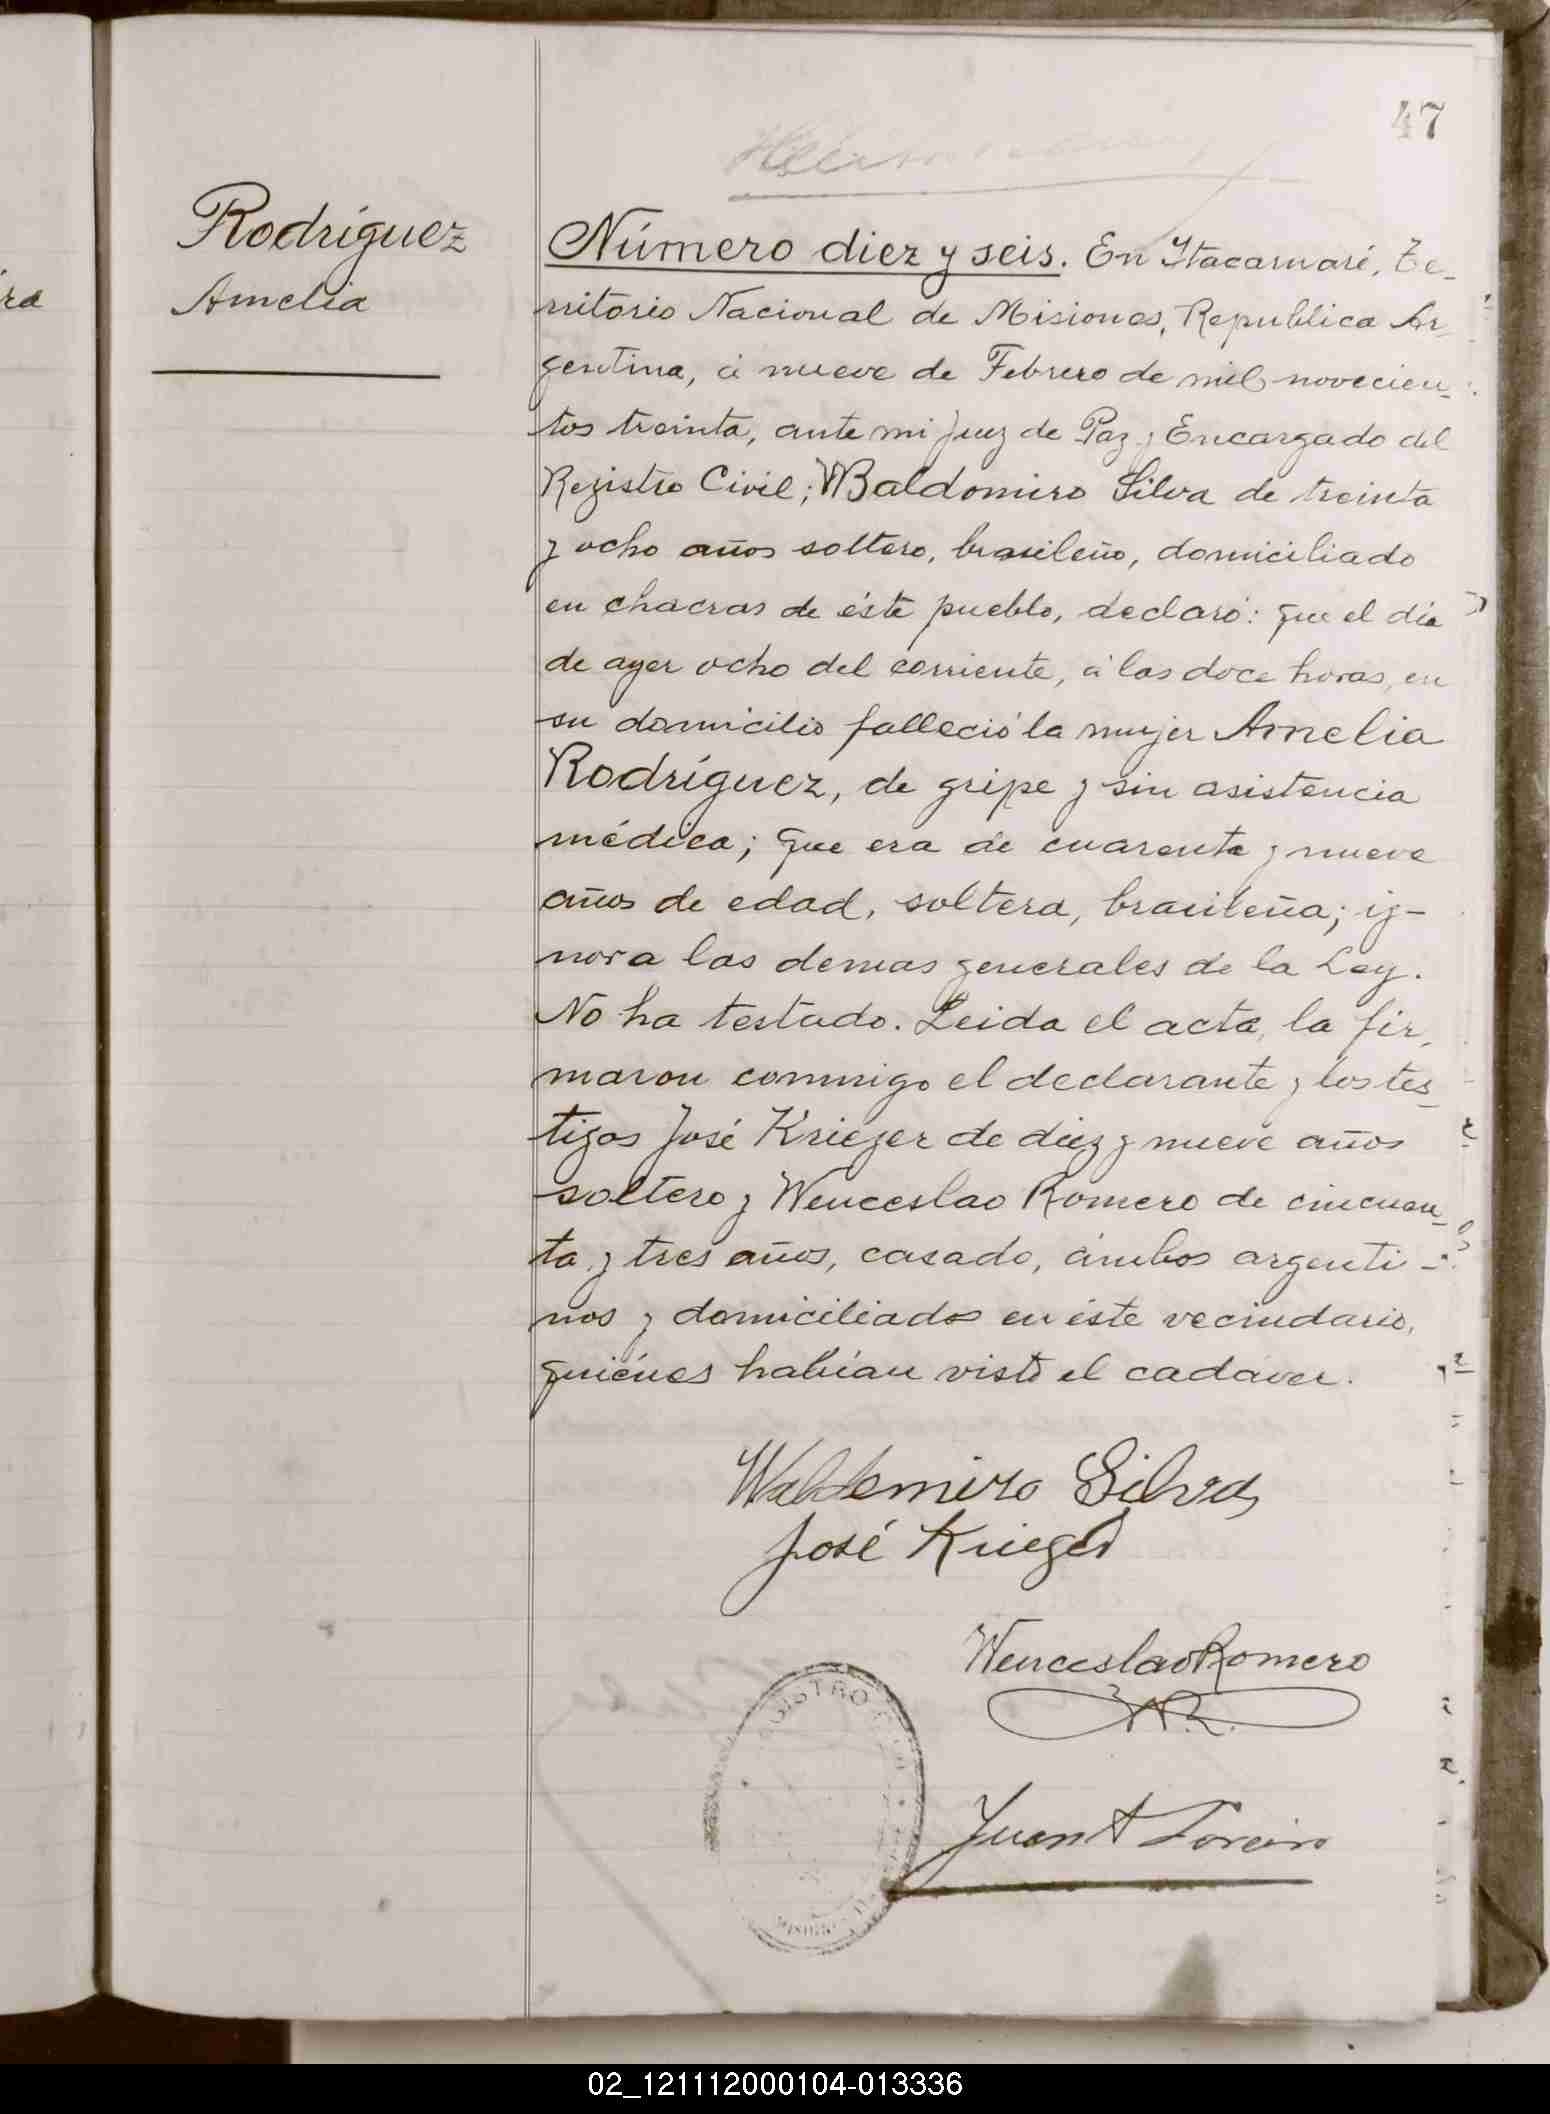 47
Rodríguez
Amelia
Número diez y seis. En Itacaruaré, Te-
rritorio Nacional de Misiones, Republica Ar-
gentina, á nueve de Febrero de mil novecien-
tos treinta, ante mi Juez de Paz y Encargado del
Registro Civil; Baldomiro Silva de treinta
y ocho años soltero, brasileño, domiciliado
en chacras de éste pueblo, declaró: que el día
de ayer ocho del corriente, á las doce horas, en
su domicilio falleció la mujer Amelia
Rodríguez, de gripe y sin asistencia
médica; que era de cuarenta y nueve
años de edad, soltera, brasileña; ig-
nora las demas generales de la Ley.
No ha testado. Leida el acta, la fir-
maron conmigo el declarante y los tes-
tigos José Krieger de diez y nueve años
soltero y Wenceslao Romero de cincuen-
ta y tres años, casado, ámbos argenti-
nos y domiciliados en éste vecindario,
quiénes habían visto el cadáver.
Waldemiro Silva
José Krieger
Wenceslao Romero
W.R.
Juan A
REGISTRO
MISIONES
02_121112000104-013336